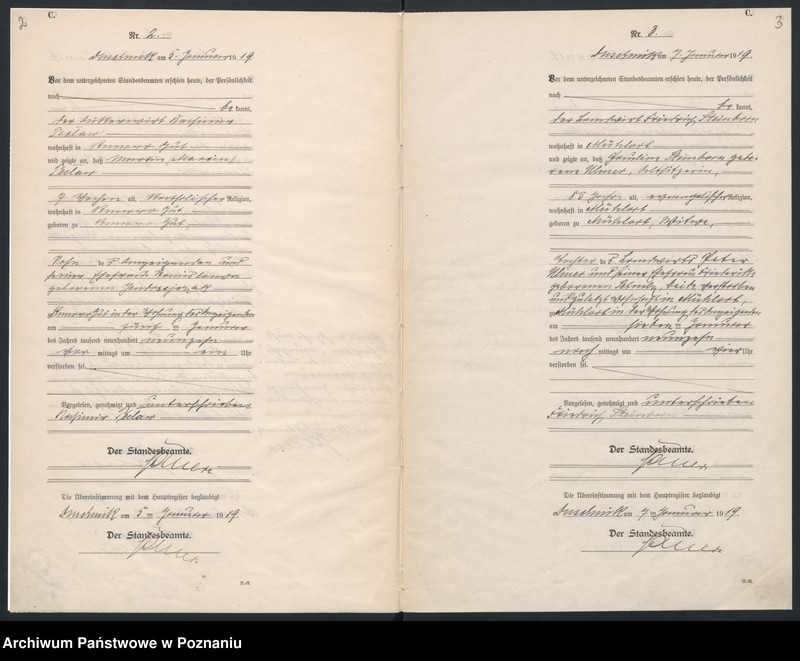 2
C.
Nr. 2.
Duschnik am 5. Januar 1919.
Vor dem unterzeichneten Standesbeamten erschien heute, der Persönlichkeit
nach
be kannt,
der Kasimir
wohnhaft in Gut
und zeigte an, daß Martin
7 Wochen alt, katholischer Religion,
wohnhaft in Gut,
geboren zu Gut,
Sohn des Anzeigenden und
seiner Ehefrau Stanislawa
geborenen
Gut in der Wohnung des Anzeigenden
am fünften Januar
des Jahres tausend neunhundert neunzehn
vor mittags um ein Uhr
verstorben sei.
Vorgelesen, genehmigt und unterschrieben
Kasimir
Der Standesbeamte.
Die Übereinstimmung mit dem Hauptregister beglaubigt
Duschnik am 5ten Januar 1919.
Der Standesbeamte.
C.
3
Nr. 3.
Duschnik am 7. Januar 1919.
Vor dem unterzeichneten Standesbeamten erschien heute, der Persönlichkeit
nach
be kannt,
der Landwirt Friedrich Steinborn
wohnhaft in Mühlort
und zeigte an, daß Pauline Steinborn gebo-
rene Ulmer, Altsitzerin,
85 Jahre alt, evangelischer Religion,
wohnhaft in Mühlort
geboren zu Mühlort, Witwe,
Tochter des Landwirts Peter
Ulmer und seiner Ehefrau Friederike
geborenen beide verstorben
und zuletzt wohnhaft in Mühlort,
zu Mühlort in der Wohnung des Anzeigenden
am siebenten Januar
des Jahres tausend neunhundert neunzehn
nach mittags um vier Uhr
verstorben sei.
Vorgelesen, genehmigt und unterschrieben
Friedrich Steinborn
Der Standesbeamte.
Die Übereinstimmung mit dem Hauptregister beglaubigt
Duschnik am 7ten Januar 1919.
Der Standesbeamte.
Archiwum Państwowe w Poznaniu